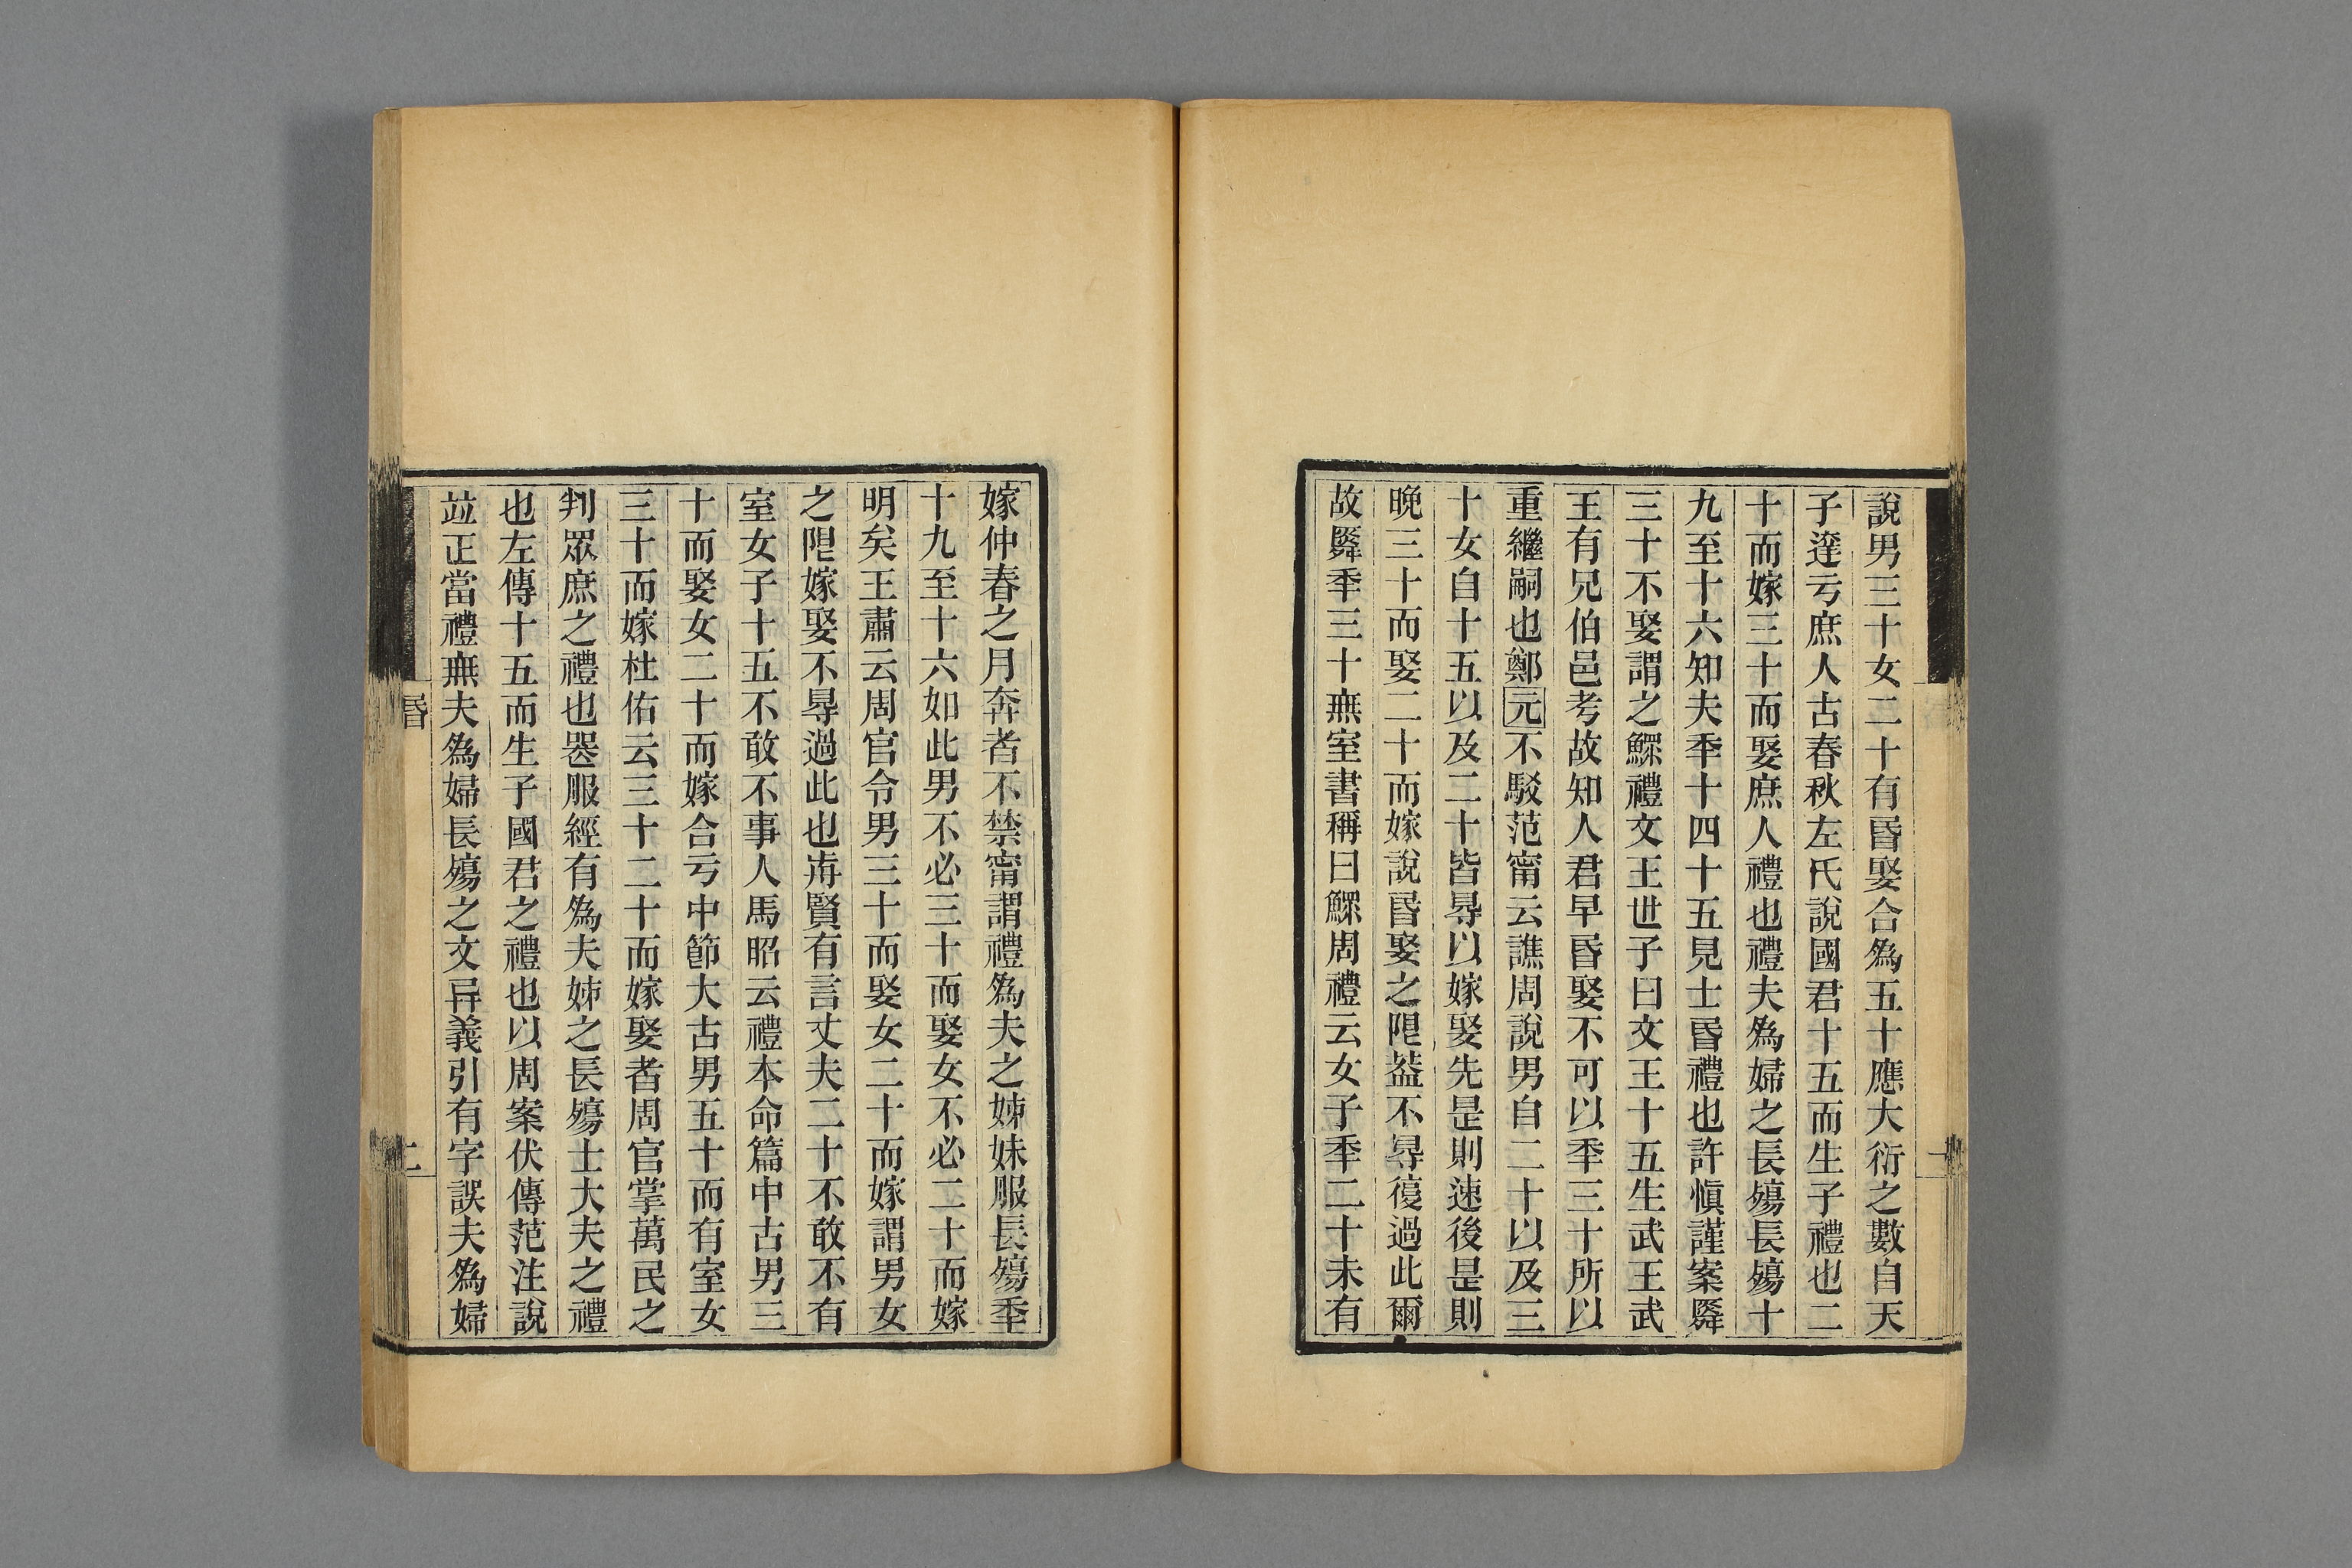 說男三十女二十有昏娶合爲五十應大衍之數自天
子達亏庶人古春秋左氏說國君十五而生子禮也二
十而嫁三十而娶庶人禮也禮夫爲婦之長殤長殤十
九至十六知夫秊十四十五見士昏禮也許愼謹案舜
三十不娶謂之鰥禮文王世子曰文王十五生武王武
王有兄伯邑考故知人君早昏娶不可以秊三十所以
重繼嗣也鄭元不駁范甯云譙周說男自二十以及三
十女自十五以及二十皆得以嫁娶先是則速後是則
晚三十而娶二十而嫁說昏娶之限葢不得復過此爾
故舜秊三十無室書稱曰鰥周禮云女子秊二十未有
嫁仲春之月奔者不禁甯謂禮爲夫之姊妹服長殤秊
十九至十六如此男不必三十而娶女不必二十而嫁
明矣王肅云周官令男三十而娶女二十而嫁謂男女
之限嫁娶不得過此也歬賢有言丈夫二十不敢不有
室女子十五不敢不事人馬昭云禮本命篇中古男三
十而娶女二十而嫁合亏中節大古男五十而有室女
三十而嫁杜佑云三十二十而嫁娶者周官掌萬民之
判眾庶之禮也喪服經有爲夫姊之長殤士大夫之禮
也左傳十五而生子國君之禮也以周案伏傳范注說
竝正當禮無夫爲婦長殤之文异義引有字誤夫爲婦
昏
二